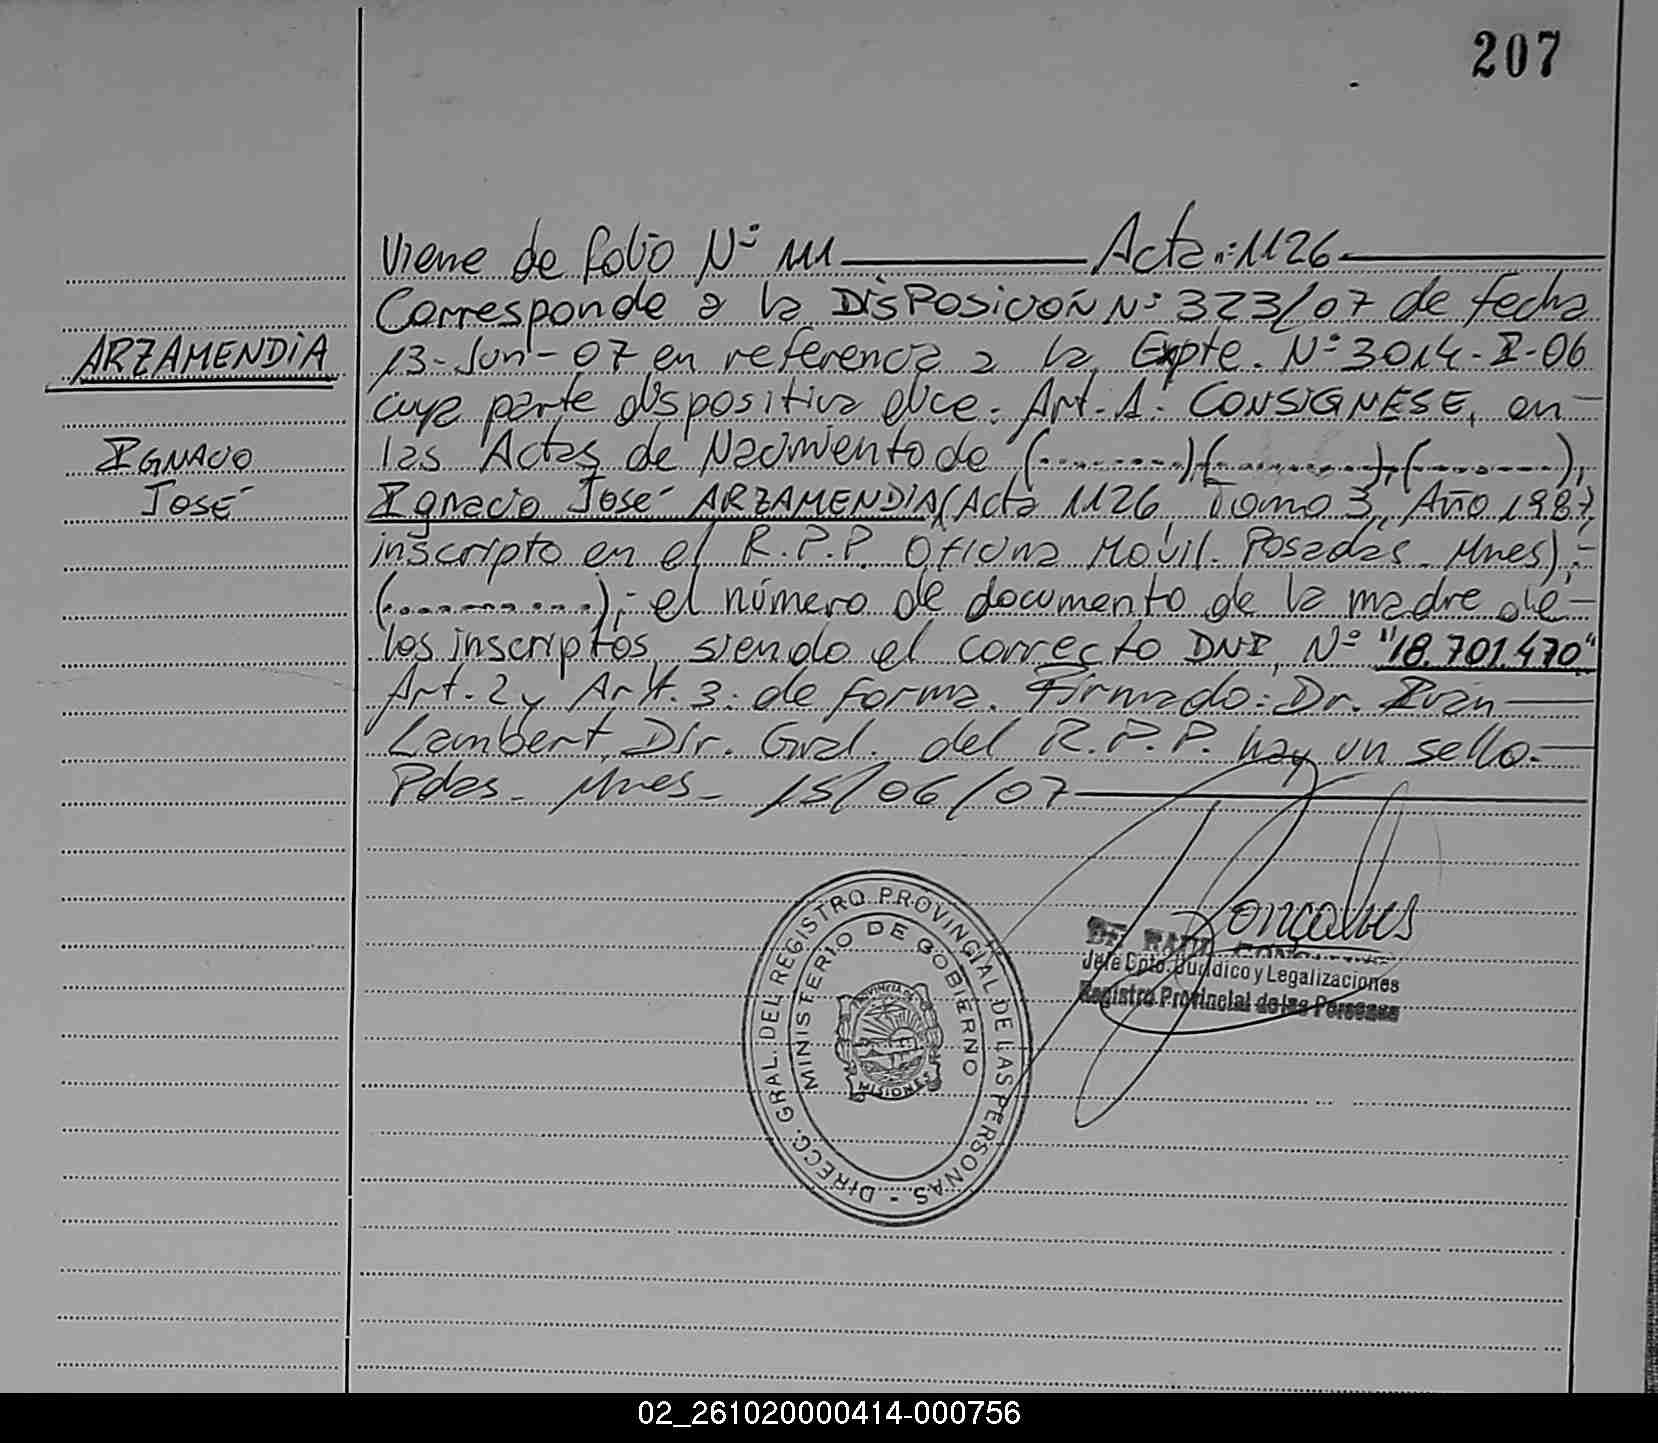 207
Viene de folio Nº 111 Acta nº: 1126
Corresponde a la DISPOSICIÓN Nº 323/07 de fecha
ARZAMENDIA
13-Jun-07 en referencia a la Expte. Nº 3014-I-06
cuya parte dispositiva dice: Art. 1: CONSIGNESE, en
IGNACIO
las Actas de Nacimiento de (..........),(..........),(..........),
JOSÉ
Ignacio José ARZAMENDIA (Acta 1126, Tomo 3, Año 1987,
inscripto en el R.P.P. Oficina Móvil. Posadas. Mnes),-
(...........),- el número de documento de la madre de
los inscriptos, siendo el correcto DNI, Nº "18.701.470"
Art. 2 y Art. 3: de forma. Firmado: Dr. Iván
Lambert, Dir. Gral. del R.P.P. hay un sello.-
Pdas- Mnes- 15/06/07
Goncalves
DR. RAUL
Jefe Dpto. Jurídico y Legalizaciones
Registro Provincial de las Personas
DIRECC. GRAL. DEL REGISTRO PROVINCIAL DE LAS PERSONAS -
MINISTERIO DE GOBIERNO
PROVINCIA DE
MISIONES
02_261020000414-000756